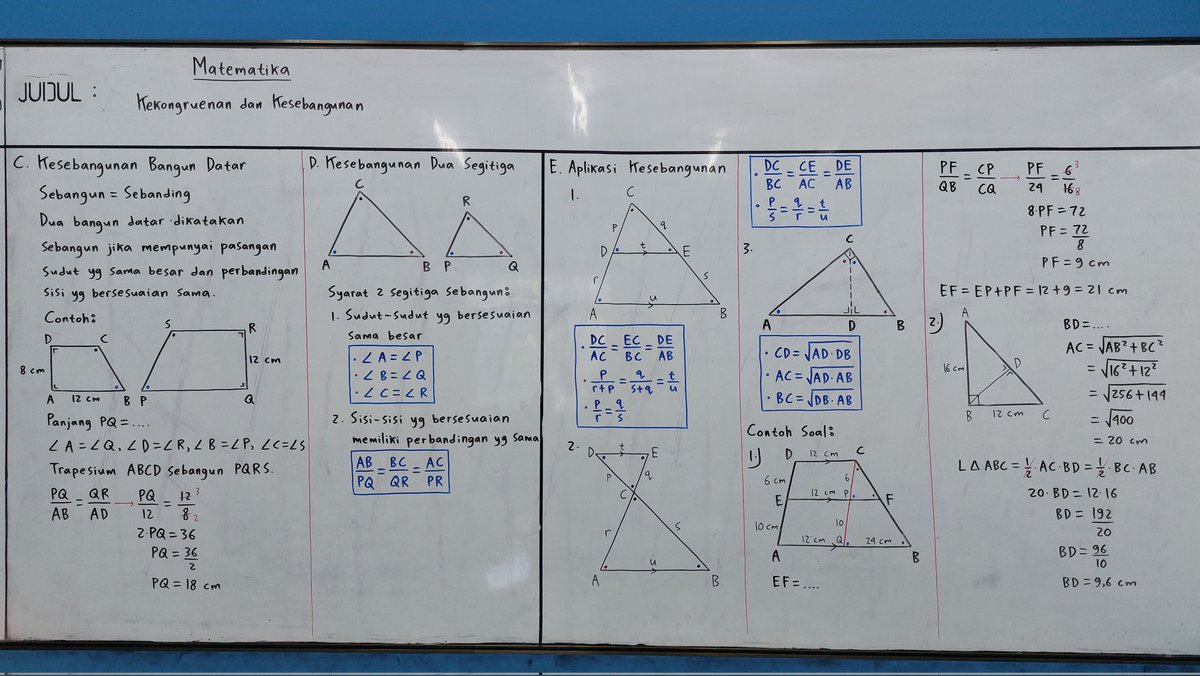 Matematika
JUDUL :
Kekongruenan dan Kesebangunan
C. Kesebangunan Bangun Datar
Sebangun = Sebanding
Dua bangun datar dikatakan
Sebangun jika mempunyai pasangan
Sudut yg sama besar dan perbandingan
Sisi yg bersesuaian sama.
Contoh:
D C S R
8 cm 12 cm
A 12 cm B P Q
Panjang PQ = ....
∠A=∠Q, ∠D=∠R, ∠B=∠P, ∠C=∠S
Trapesium ABCD sebangun PQRS.
PQ/AB = QR/AD → PQ/12 = 12³/8₂
2·PQ = 36
PQ = 36/2
PQ = 18 cm
D. Kesebangunan Dua Segitiga
C R
A B P Q
Syarat 2 segitiga sebangun:
1. Sudut-sudut yg bersesuaian
sama besar
· ∠A = ∠P
· ∠B = ∠Q
· ∠C = ∠R
2. Sisi-sisi yg bersesuaian
memiliki perbandingan yg sama
AB/PQ = BC/QR = AC/PR
E. Aplikasi Kesebangunan
1.
C
P q
D t E
r s
A u B
· DC/AC = EC/BC = DE/AB
· P/r+P = q/s+q = t/u
· P/r = q/s
2.
D t E
P q
C
r s
A u B
· DC/BC = CE/AC = DE/AB
· P/s = q/r = t/u
3.
C
A D B
· CD = √AD·DB
· AC = √AD·AB
· BC = √DB·AB
Contoh Soal:
1.)
D 12 cm C
6 cm 6
E 12 cm P F
10 cm 10
12 cm Q 24 cm
A B
EF = ....
PF/QB = CP/CQ → PF/24 = 6³/16₈
8·PF = 72
PF = 72/8
PF = 9 cm
EF = EP + PF = 12 + 9 = 21 cm
2.)
A
16 cm D
B 12 cm C
BD = ....
AC = √AB² + BC²
= √16² + 12²
= √256 + 144
= √400
= 20 cm
L△ABC = 1/2 · AC · BD = 1/2 · BC · AB
20 · BD = 12 · 16
BD = 192/20
BD = 96/10
BD = 9,6 cm